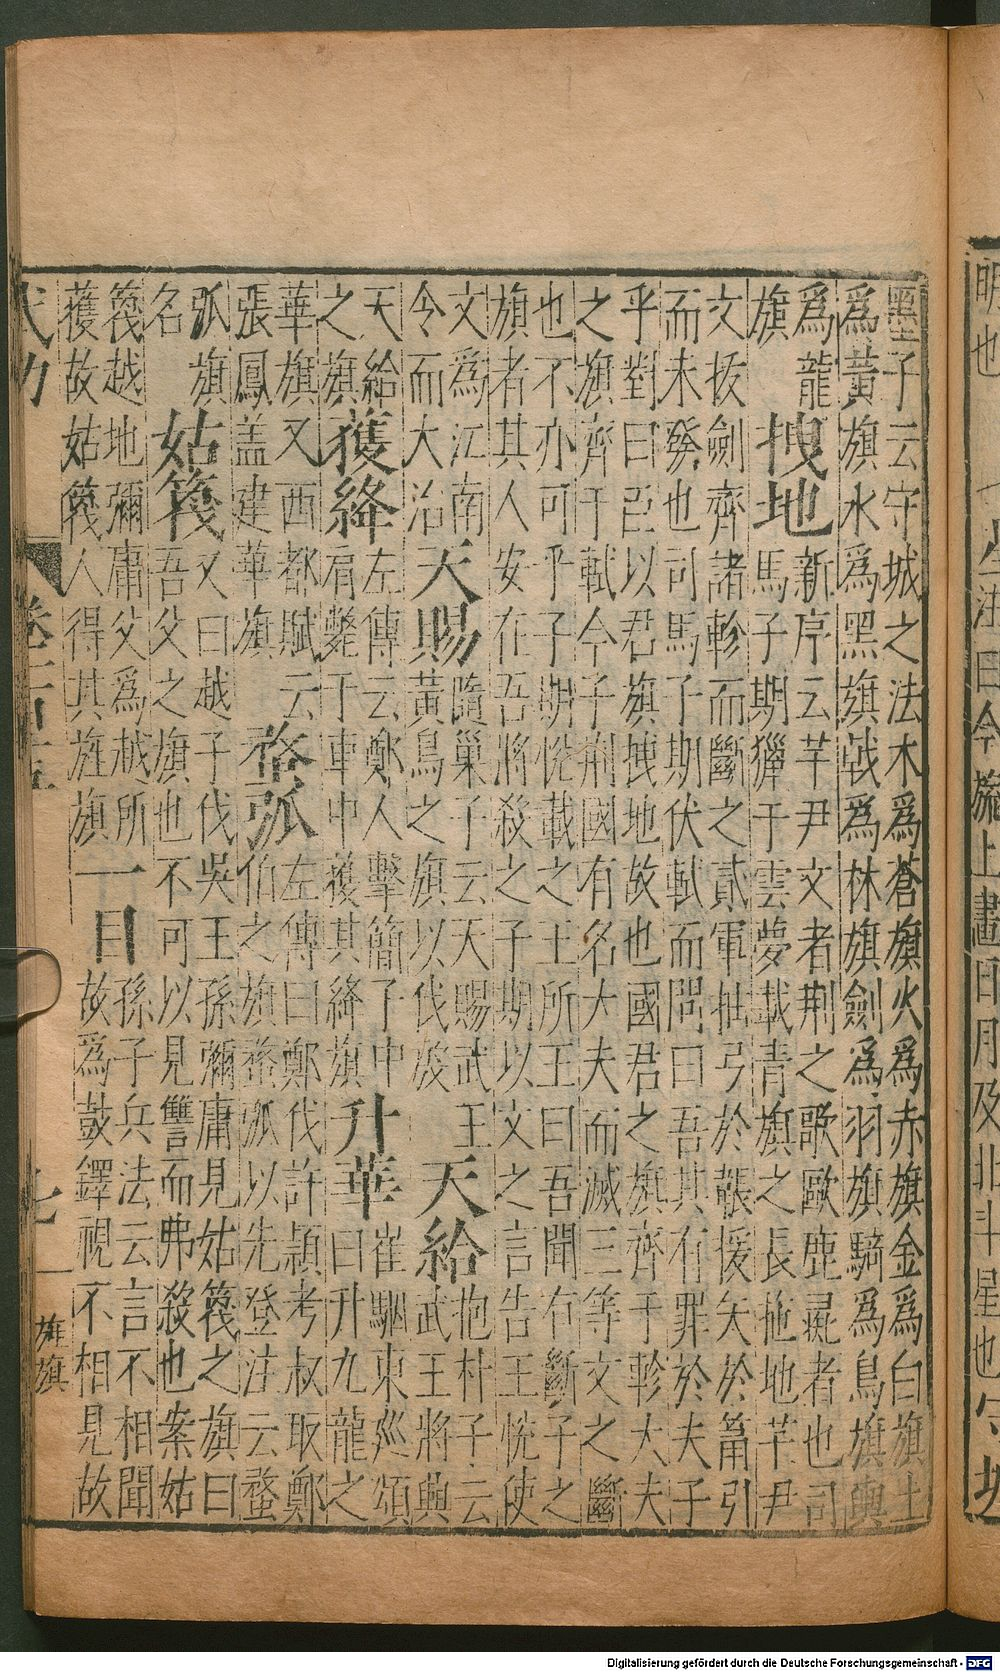 明也
法曰今旐上畫日月及北斗星也
守城
墨子云守城之法木爲蒼旗火爲赤旗金爲白旗土
爲黃旗水爲黑旗戟爲林旗劍爲羽旗騎爲鳥旗輿
爲龍
旗
拽地
新序云芊尹文者荆之歌歐鹿彘者也司
馬子期獵于雲夢載青旗之長拖地芊尹
文拔劍齊諸軫而斷之貳軍抽弓於韔援矢於筩引
而未發也司馬子期伏軾而問曰吾其有罪於夫子
乎對曰臣以君旗拽地故也國君之旗齊于軫大夫
之旗齊于軾今子荆國有名大夫而滅三等文之斷
也不亦可乎子期悅載之王所王曰吾聞有斷子之
旗者其人安在吾將殺之子期以文之言告王悅使
文爲江南
令而大治
天賜
隨巢子云天賜武王
黃鳥之旗以伐殷
天給
抱朴子云
武王將興
天給
之旗
獲綘
左傳云鄭人擊簡子中
肩斃于車中獲其綘旗
升華
崔駰東廵頌
曰升九龍之
華旗又西都賦云
張鳳盖建華旗
蝥弧
左傳曰鄭伐許潁考叔取鄭
伯之旗蝥弧以先登注云蝥
弧旗
名
姑篾
又曰越子伐吳王孫彌庸見姑篾之旗曰
吾父之旗也不可以見讐而弗殺也案姑
篾越地彌庸父爲越所
獲故姑篾人得其旌旗
一目
孫子兵法云言不相聞
故爲鼓鐸視不相見故
武功
七
旌旗
Digitalisierung gefördert durch die Deutsche Forschungsgemeinschaft - DFG